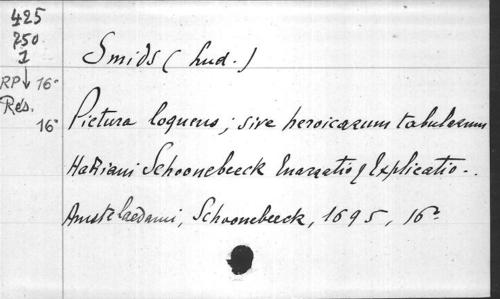 425
750
1
RP ↓ 16°
Res.
16°
Smids (Lud.)
Pictura loquens; sive heroicarum tabularum
Hadriani Schoonebeeck Enarratio & Explicatio..
Amstelaedami, Schoonebeeck, 1695, 16°